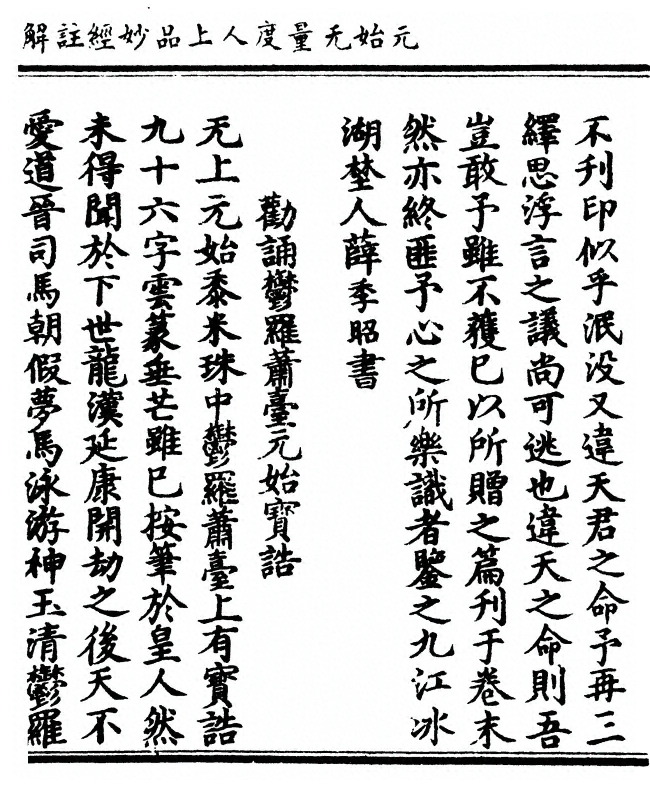 元始无量度人上品妙經註解
不刋印似乎泯没又違天君之命予再三
繹思浮言之議尚可逃也違天之命則吾
豈敢予雖不獲已以所贈之篇刋于卷末
然亦終匪予心之所樂識者鑒之九江冰
湖埜人薛季昭書
勸誦鬱羅蕭臺元始寶誥
无上元始黍米珠中鬱羅蕭臺上有寶誥
九十六字雲篆垂芒雖已按筆於皇人然
未得聞於下世龍漢延康開劫之後天不
愛道晉司馬朝假夢馬泳游神玉清鬱羅